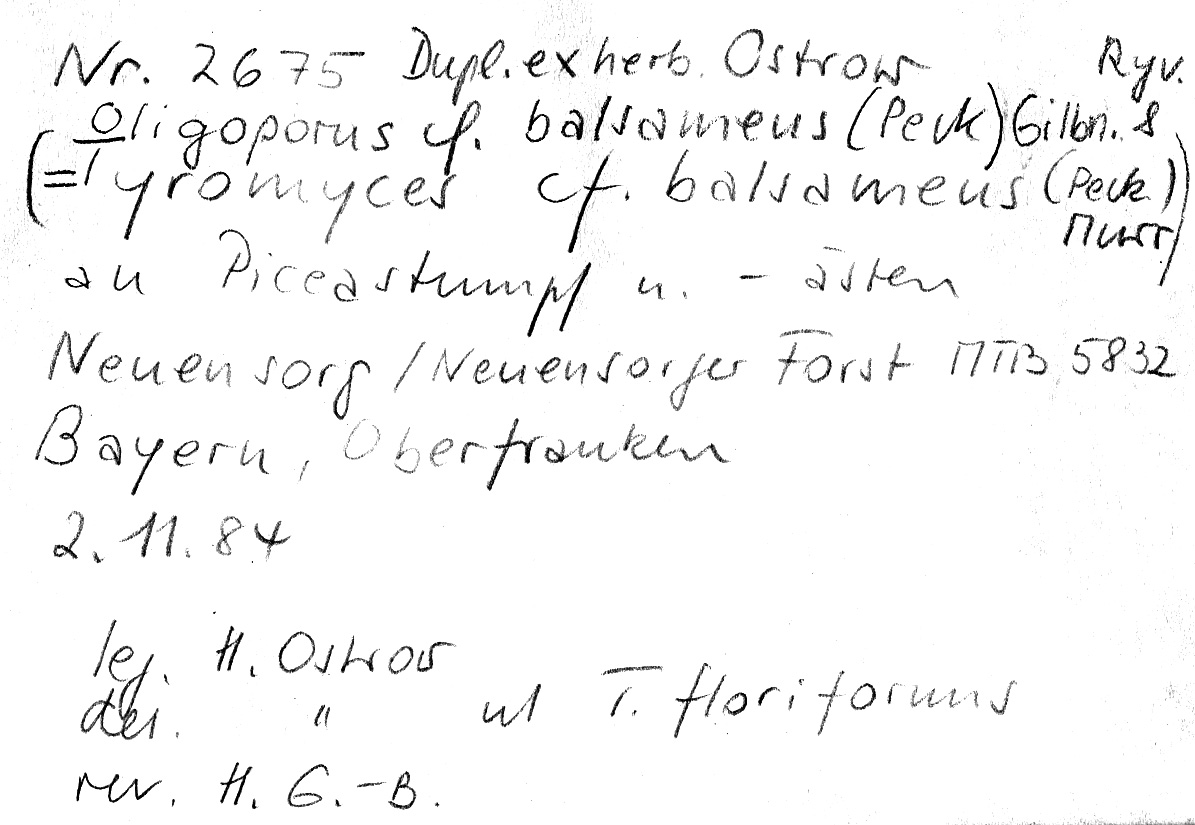 Nr. 2675 Dupl. ex herb. Ostrow
Oligoporus cf. balsameus (Peck) Gilbn. & Ryv.
(= Tyromyces cf. balsameus (Peck.) Murr)
an Piceastumpf u. - ästen
Neuensorg / Neuensorger Forst MTB 5832
Bayern, Oberfranken
2. 11. 84
leg. H. Ostrow
det. " ut T. floriformis
rev. H. G.-B.